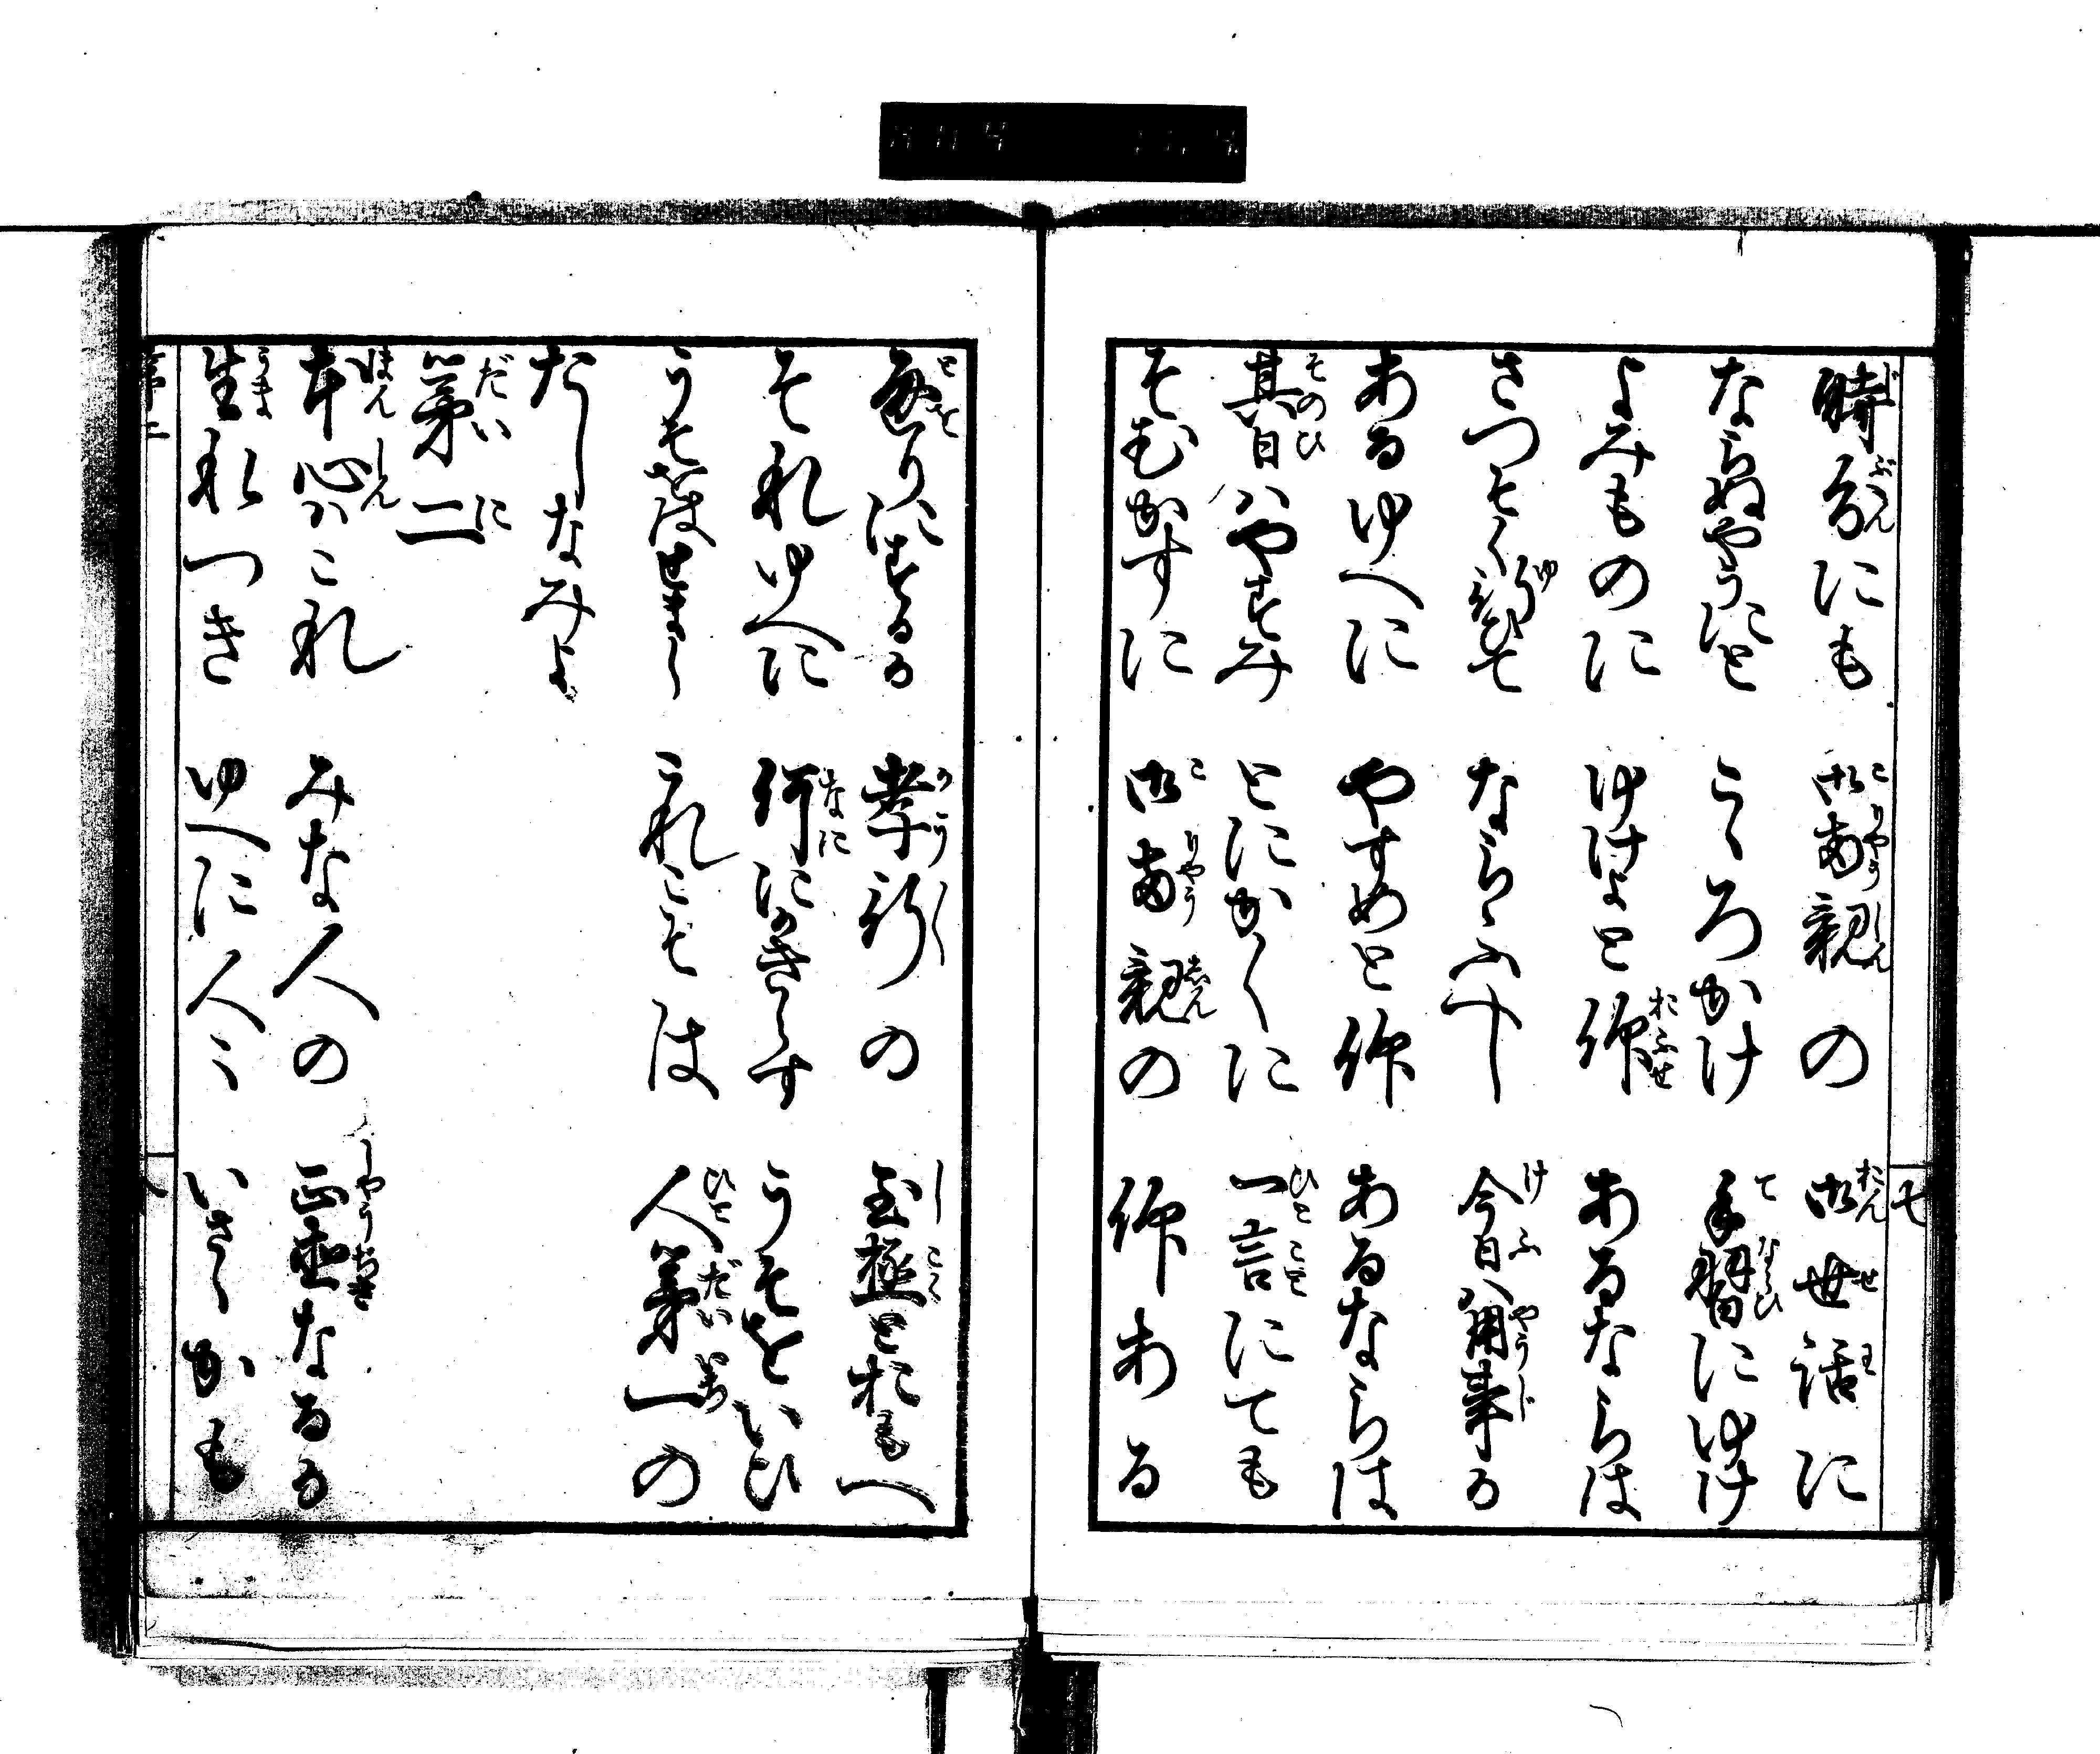 七
時分にも 御両親の 御世話に
ならぬやうにと こゝろかけ 手習にゆけ
よみものに ゆけよと仰 あるならは
さつそく行て ならふへし 今日ハ用事か
あるゆへに やすめと仰 あるならは
其日ハやすみ とにかくに 一言にても
そむかすに 御両親の 仰ある
通りにするか 孝行の 至極とおもへ
それゆへに 何にかきらす うそをいひ
うそ これこそは 人第一の
たしなみよ
第二
本心ハこれ みな人の 正直なるか
生れつき ゆへに人々 いさゝかも